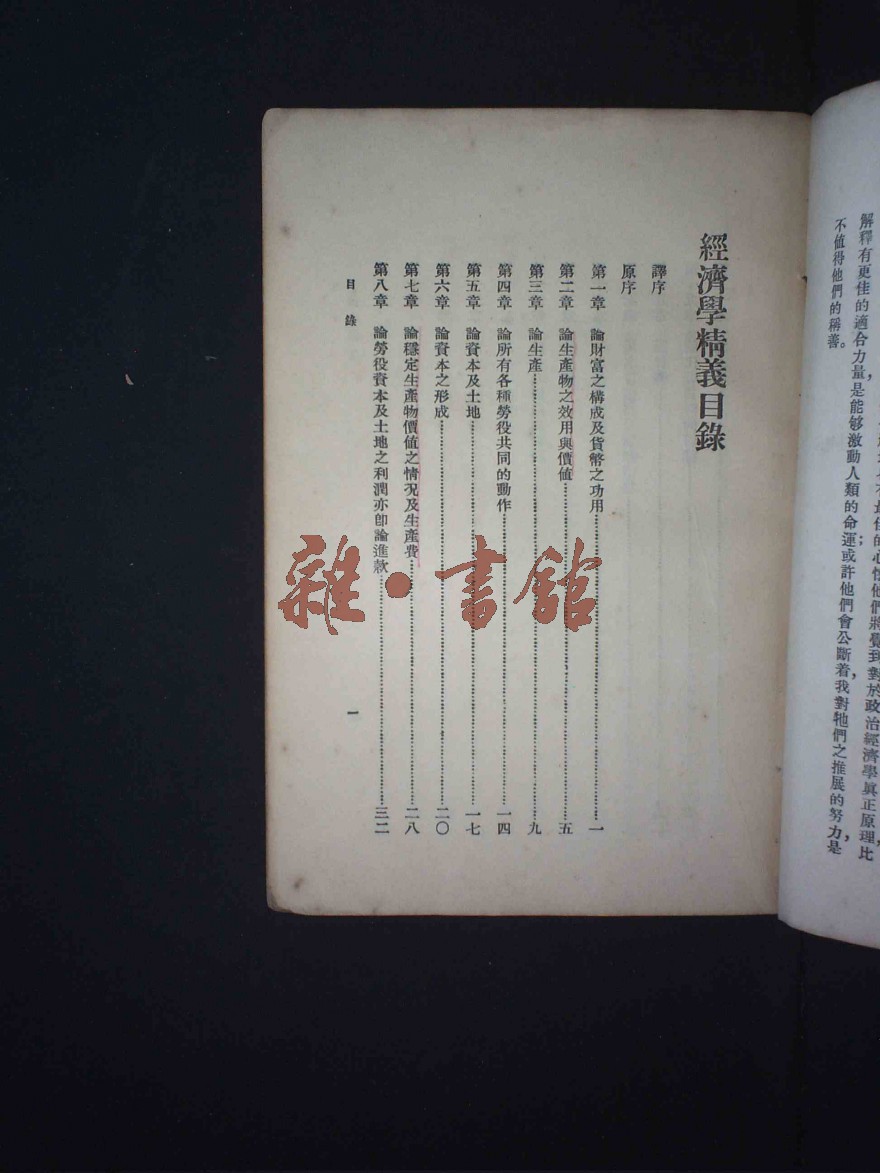 解釋有更佳的適合力量是能够激動人類的命運或許他們會公斷着我對牠們之推展的努力是
不值得他們的稱善。
經濟學精義目錄
譯序
原序
第一章 論財富之構成及貨幣之功用 一
第二章 論生產物之效用與價值 五
第三章 論生產 九
第四章 論所有各種勞役共同的動作 一四
第五章 論資本及土地 一七
第六章 論資本之形成 二〇
第七章 論穩定生產物價值之情况及生產費 二八
第八章 論勞役資本及土地之利潤亦卽論進款 三二
目錄 一
雜·書館